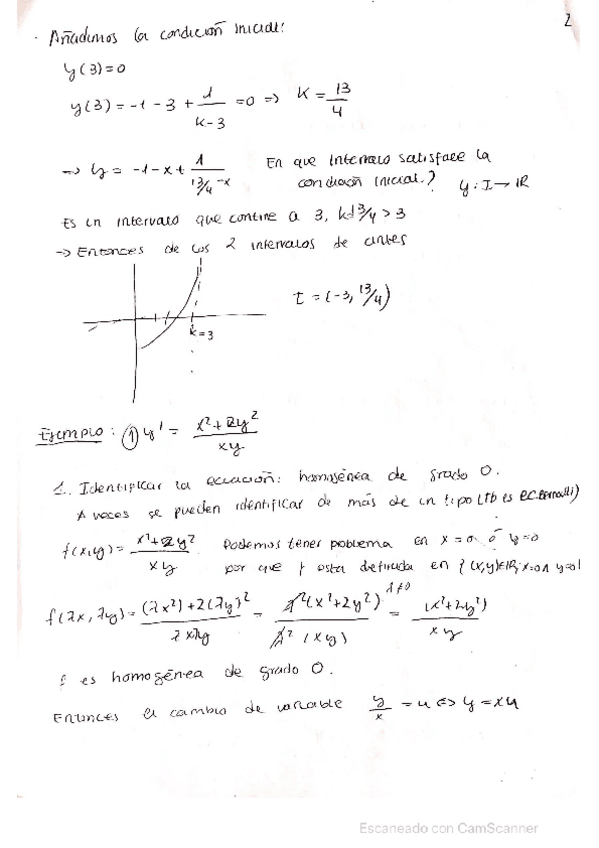 2
· Añadimos la condición inicial:
y(3)=0
y(3) = -1 - 3 + 1/(k-3) = 0 => k = 13/4
→ y = -1 - x + 1/(13/4 - x) En que intervalo satisface la condición inicial? y: I → IR
Es un intervalo que contine a 3, 13/4 > 3
→ Entonces de los 2 intervalos de antes
I = (-3, 13/4)
k=3
Ejemplo: ① y' = (x² + 2y²)/(xy)
1. Identificar la ecuación: homogénea de grado 0.
A veces se pueden identificar de más de un tipo (tb es EC. Bernoulli)
f(x,y) = (x² + 2y²)/(xy) Podemos tener poblema en x = 0 ó y=0
por que f esta definida en {(x,y)∈IR; x=0 ∧ y=0}
f(λx, λy) = ((λx²) + 2(λy)²)/(λxλy) = λ²(x² + 2y²)/(λ²(xy)) = (x² + 2y²)/(xy) λ≠0
f es homogénea de grado 0.
Entonces el cambio de variable y/x = u <=> y = xu
Escaneado con CamScanner